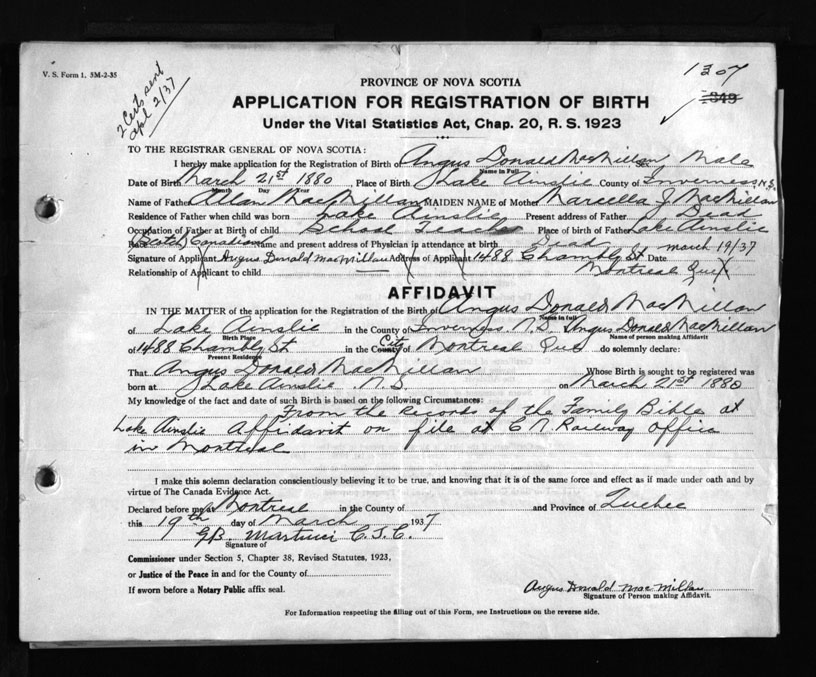 V. S. Form 1, 5M-2-35
2 Certs sent
Apl 2/37
1307
PROVINCE OF NOVA SCOTIA
APPLICATION FOR REGISTRATION OF BIRTH
Under the Vital Statistics Act, Chap. 20, R. S. 1923
TO THE REGISTRAR GENERAL OF NOVA SCOTIA:
I hereby make application for the Registration of Birth of Angus Donald MacMillan Sex Male
Name in Full
Date of Birth March 21st 1880, Place of Birth Lake Ainslie County of Inverness N.S.
Month Day Year
Name of Father Allan MacMillan MAIDEN NAME of Mother Marcella J MacMillan
Residence of Father when child was born Lake Ainslie Present address of Father Dead
Occupation of Father at Birth of child School Teacher Place of birth of Father Lake Ainslie
Race (Scotch) Canadian Name and present address of Physician in attendance at birth Dead
Signature of Applicant Angus Donald MacMillan Address of Applicant 1488 Chambly St. Date March 19/37
Relationship of Applicant to child Montreal Que
AFFIDAVIT
IN THE MATTER of the application for the Registration of the Birth of Angus Donald MacMillan
Name in full
of Lake Ainslie in the County of Inverness N.S. Angus Donald MacMillan
Birth Place Name of person making Affidavit
of 1488 Chambly St in the County City of Montreal Que do solemnly declare:
Present Residence
That Angus Donald MacMillan Whose Birth is sought to be registered was
born at Lake Ainslie N.S. on March 21st 1880
My knowledge of the fact and date of such Birth is based on the following Circumstances:
From the records of the Family Bible at
Lake Ainslie Affidavit on file at C N. Railway Office
in Montreal
I make this solemn declaration conscientiously believing it to be true, and knowing that it is of the same force and effect as if made under oath and by
virtue of The Canada Evidence Act.
Declared before me at Montreal in the County of and Province of Quebec
this 19th day of March 1937
G.B. Martucci C.S.C.
Signature of
Commissioner under Section 5, Chapter 38, Revised Statutes, 1923,
or Justice of the Peace in and for the County of
If sworn before a Notary Public affix seal.
Angus Donald MacMillan
Signature of Person making Affidavit.
For Information respecting the filling out of this Form, see Instructions on the reverse side.